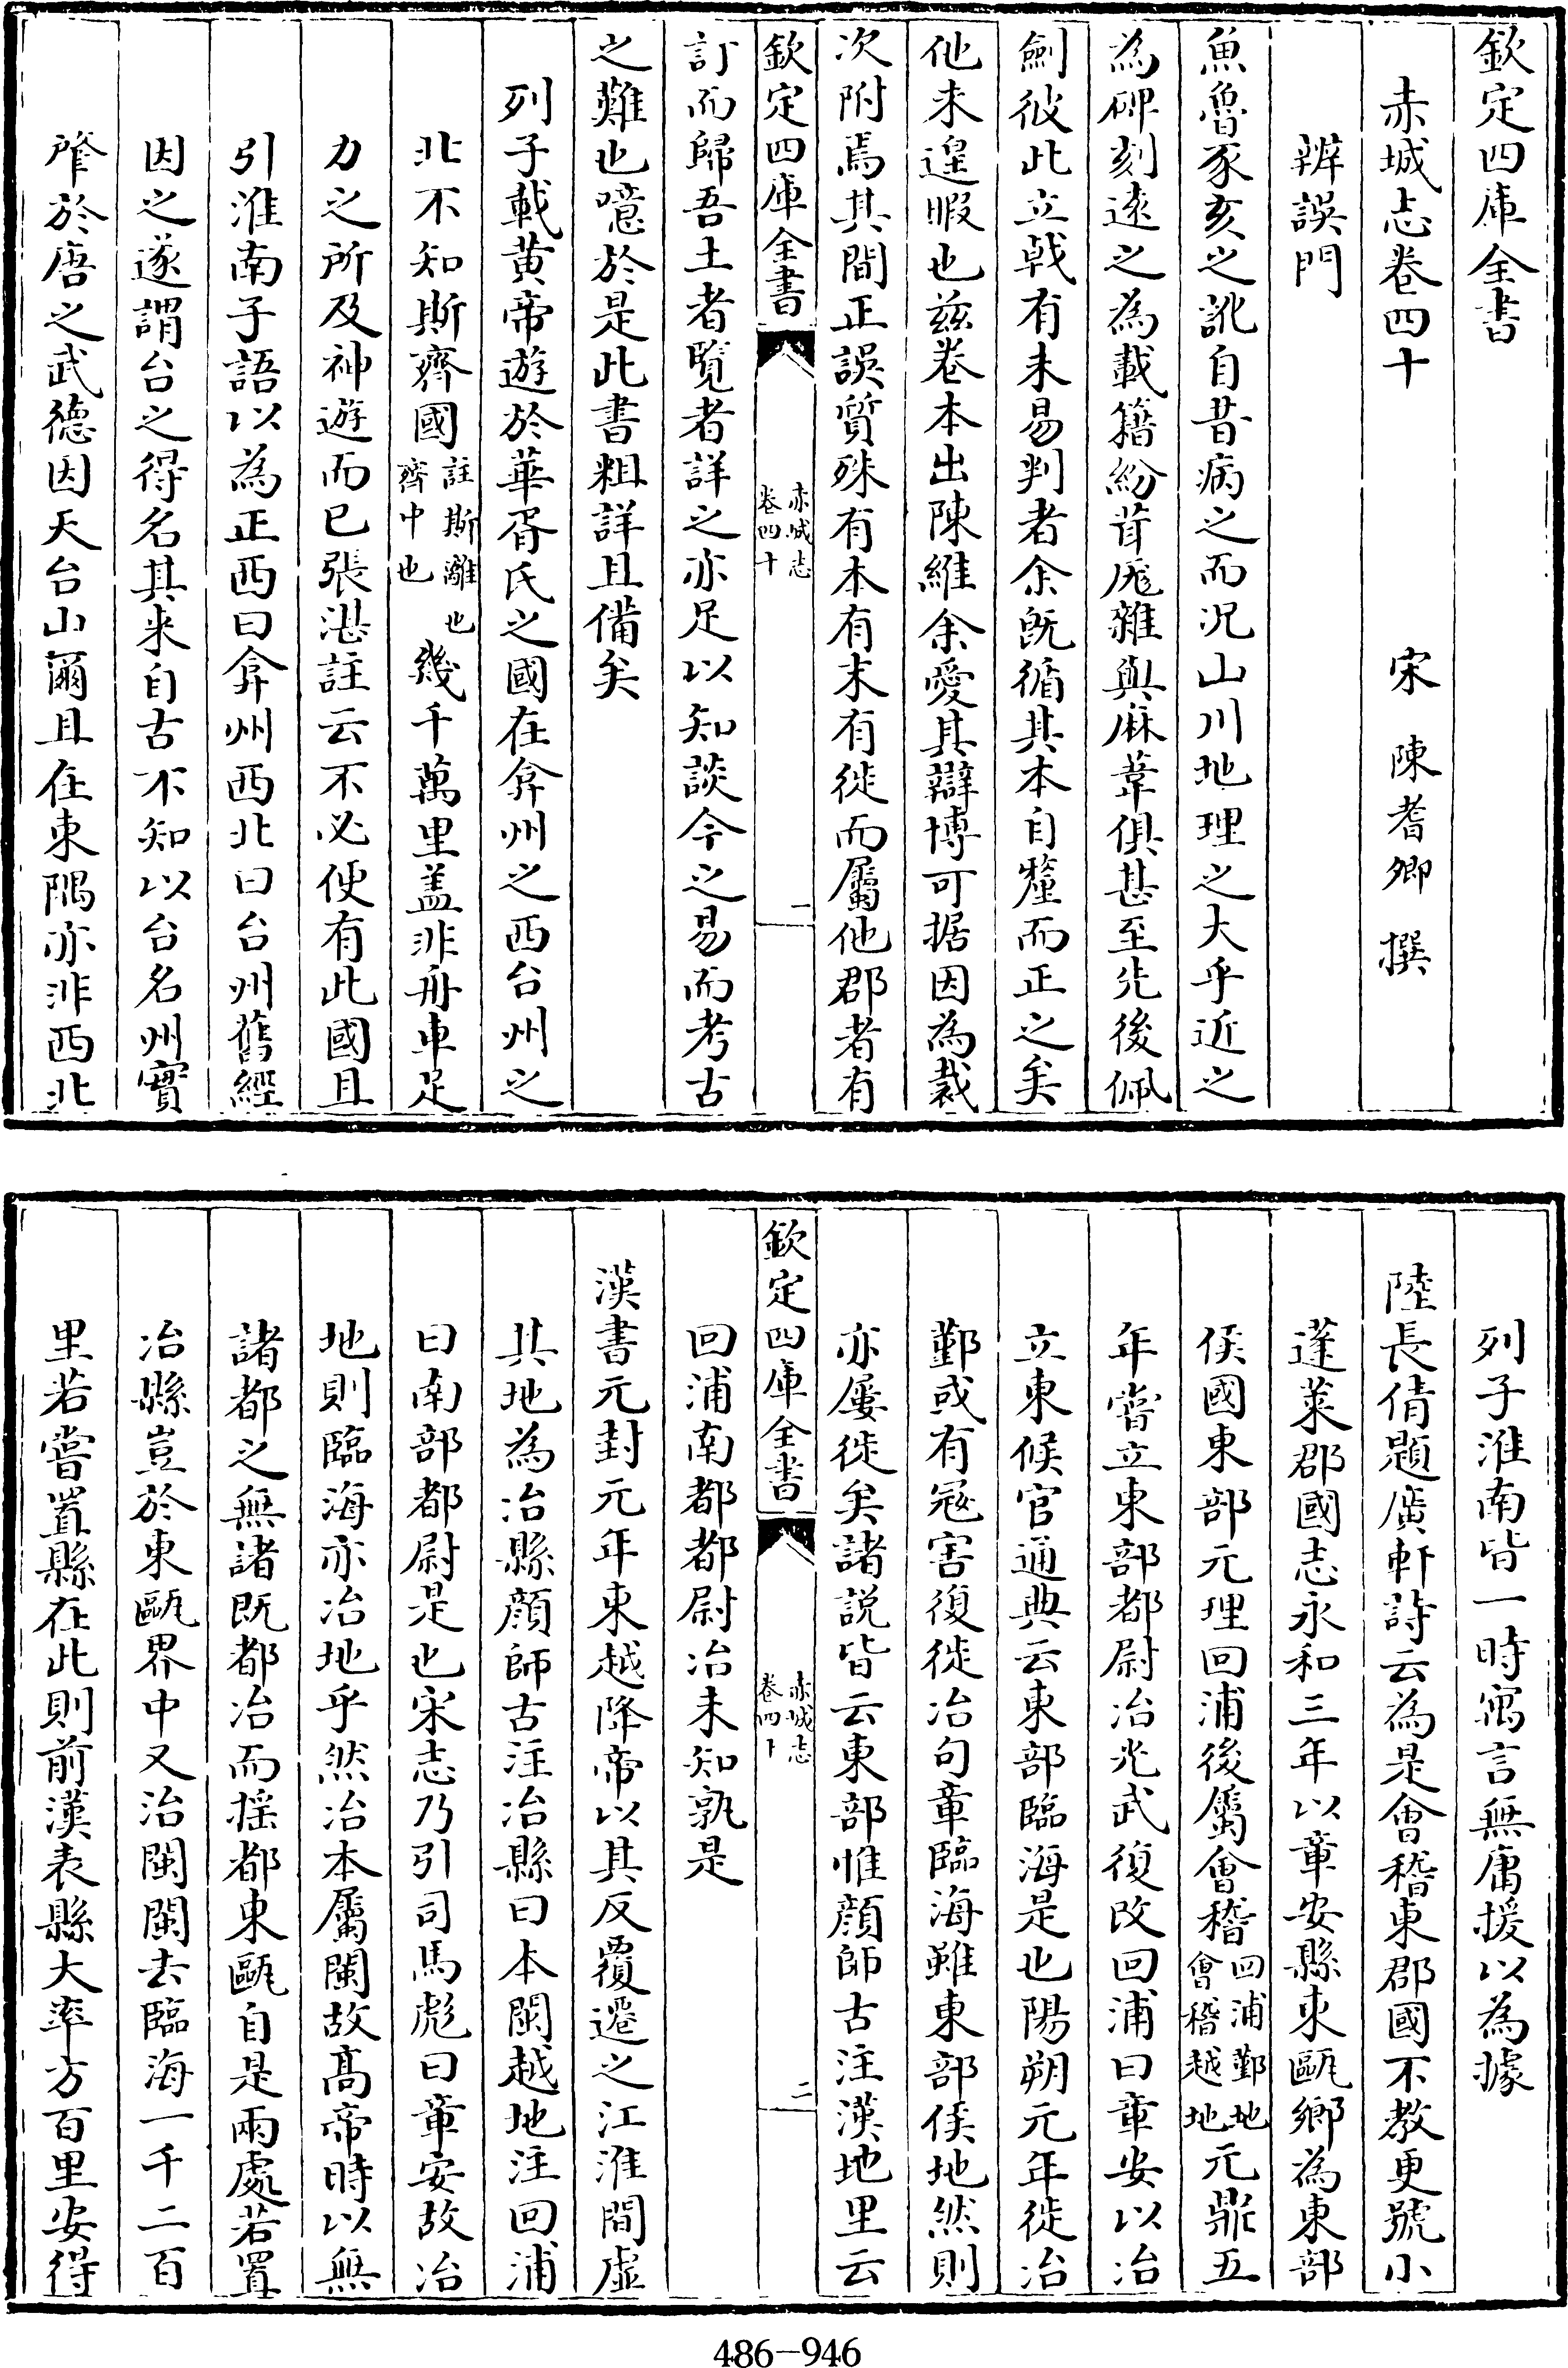 欽定四庫全書
赤城志卷四十
宋 陳耆卿 撰
辨誤門
魚魯豕亥之訛自昔病之而况山川地理之大乎近之
為碑刻逺之為載籍紛茸厖雜與麻葦俱甚至先後佩
劍彼此立㦸有未易判者余既循其本自釐而正之矣
他未遑暇也兹卷本出陳維余愛其辯博可据因為裁
次附焉其間正誤質殊有本有末有徙而屬他郡者有
欽定四庫全書
赤城志
卷四十
一
訂而歸吾土者覽者詳之亦足以知談今之易而考古
之難也噫於是此書粗詳且備矣
列子載黄帝遊於華胥氏之國在弇州之西台州之
北不知斯齊國註斯離也齊中也幾千萬里盖非舟車足
力之所及神遊而已張湛註云不必便有此國且
引淮南子語以為正西曰弇州西北曰台州舊經
因之遂謂台之得名其來自古不知以台名州實
肇於唐之武德因天台山爾且在東隅亦非西北
列子淮南皆一時寓言無庸援以為據
陸長倩題廣軒詩云為是會稽東郡國不教更號小
蓬萊郡國志永和三年以章安縣東甌鄉為東部
侯國東部元理回浦後屬會稽回浦鄞地會稽越地元鼎五
年嘗立東部都尉冶光武復改回浦曰章安以冶
立東候官通典云東部臨海是也陽朔元年徙冶
鄞或有冦害復徙冶句章臨海雖東部侯地然則
亦屢徙矣諸説皆云東部惟顔師古注漢地里云
欽定四庫全書
赤城志
卷四十
二
回浦南都都尉冶未知孰是
漢書元封元年東越降帝以其反覆遷之江淮間虚
其地為冶縣顔師古注冶縣曰本閩越地注回浦
曰南部都尉是也宋志乃引司馬彪曰章安故冶
地則臨海亦冶地乎然冶本屬閩故髙帝時以無
諸都之無諸既都冶而揺都東甌自是兩處若置
冶縣豈於東甌界中又治閩閩去臨海一千二百
里若嘗置縣在此則前漢表縣大率方百里安得
486-946